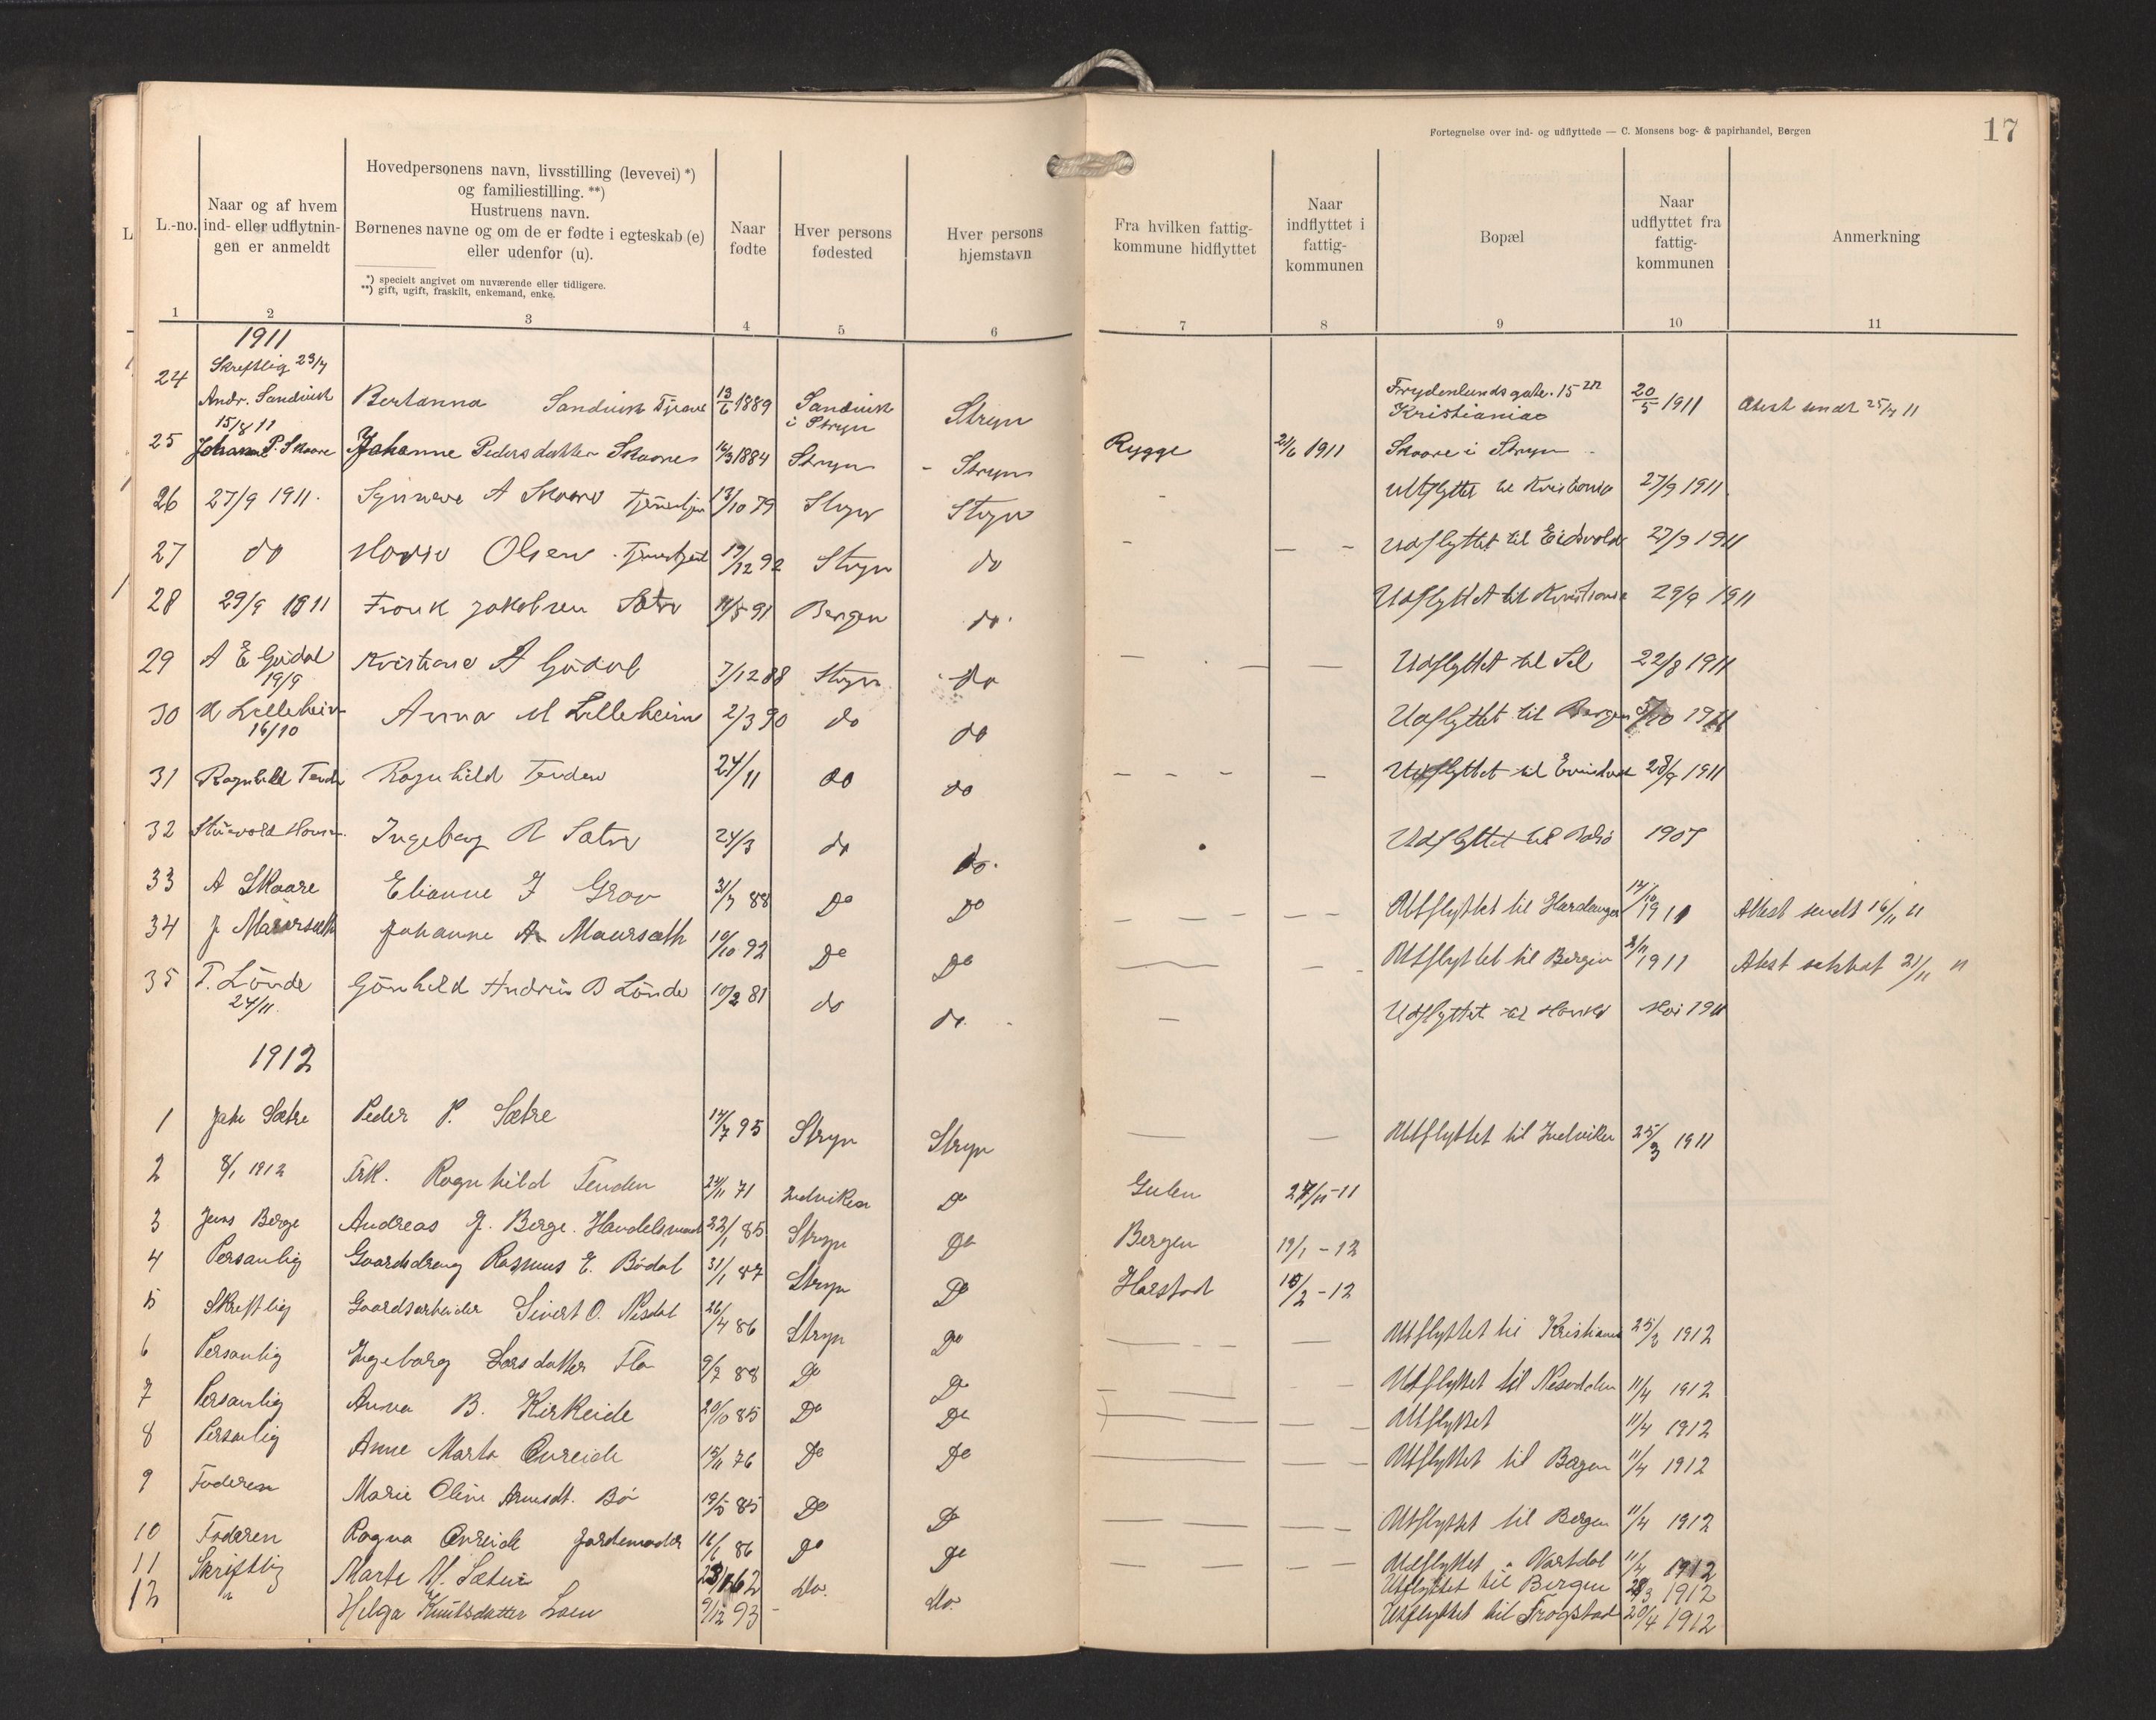 Fortegnelse over ind- og udflyttede — C. Monsens bog- & papirhandel, Bergen
17
L.-no.
Naar og af hvem
ind- eller udflytnin-
gen er anmeldt
Hovedpersonens navn, livsstilling (levevei) *)
og familiestilling. **)
Hustruens navn.
Børnenes navne og om de er fødte i egteskab (e)
eller udenfor (u).
*) specielt angivet om nuværende eller tidligere.
**) gift, ugift, fraskilt, enkemand, enke.
Naar
fødte
Hver persons
fødested
Hver persons
hjemstavn
Fra hvilken fattig-
kommune hidflyttet
Naar
indflyttet i
fattig-
kommunen
Bopæl
Naar
udflyttet fra
fattig-
kommunen
Anmerkning
1 2 3 4 5 6 7 8 9 10 11
1911
24 Skreftlig 23/4
Andr. Sandvik Bertanna Sandvik 13/6 1889 Sandvik i Stryn Stryn Frydenlundsgate 15 Kristiania 20/5 1911 Attest sendt 25/4 11
15/8 11
25 Johanne P. Skaare Johanne Pedersdatter Skaare 1884 Stryn - Stryn Rygge 21/6 1911 Skaare i Stryn
26 27/9 1911. A Skaare 13/10 79 Stryn Stryn - Utflyttet til Kristiania 27/9 1911
27 do Olsen 19/12 92 Stryn do - - - Udflyttet til Eidsvold 27/9 1911
28 29/9 1911 Frank Jakobsen Sætre 91 Bergen do. Udflyttet til Kristiania 29/9 1911
29 A E Gjidal Kristiane A Gjidal 7/12 88 Stryn do - - - Udflyttet til Sel 22/8 1911
19/9
30 Lilleheim Anna M Lilleheim 2/3 90 do do Udflyttet til Bergen 1911
16/10
31 Ragnhild Tenden Ragnhild Tenden 24/11 do do - - - - Udflyttet til 28/9 1911
32 Ingeborg R Sætre 24/3 do do. Udflyttet til
33 A Skaare Elianne J Grov 31/7 88 Do Do - - - - - - Utflyttet til Hardanger 14/10 1911 Attest sendt 16/11 11
34 J Maursæth Johanne A Maursæth 10/10 92 Do Do - - - Utflyttet til Bergen 1911 Atest 21/11 11
35 T. Lönde Gönhild B Lönde 10/2 81 do do. - Udflyttet til Mai 1911
24/11
1912
1 Jak Sætre Peder P. Sætre 14/7 95 Stryn Stryn - - Utflyttet til Indviken 25/3 1911
2 8/1 1912 Frk. Ragnhild Tenden 24/11 71 Indviken Do Gulen 27/11-11
3 Jens Berge Andreas J. Berge. Handelsmand 22/1 85 Stryn Do Bergen 19/1 - 12
4 Personlig Gaardsdreng Rasmus E. Bødal 31/1 87 Stryn Do Harstad 15/2 - 12
5 Skreftlig Gaardsarbeider Sivert O. Nesdal 26/4 86 Stryn Do - - - - Utflyttet til Kristiania 25/2 1912
6 Personlig Ingeborg Larsdatter Flo 9/7 88 Do Do - - - - Utflyttet til Nesodden 11/4 1912
7 Personlig Anna B. Kirkeide 20/10 85 Do Do - - - - Utflyttet 11/4 1912
8 Personlig Anne Marta Øvreide 15/11 76 Do Do - - - - Utflyttet til Bergen 11/4 1912
9 Faderen Marie Oline Bö 19/5 85 Do Do - - - - Utflyttet til Bergen 11/4 1912
10 Faderen Ragna Øvreide Jordemoder 16/6 86 Do Do - - - - Udflyttet Vartdal 11/4 1912
11 Skriftlig Marte M. Sæter 62 do. do. Utflyttet til Bergen 1912
12 " Helga Knutsdatter Loen 9/12 93 - Utflyttet til Trøgstad 20/4 1912